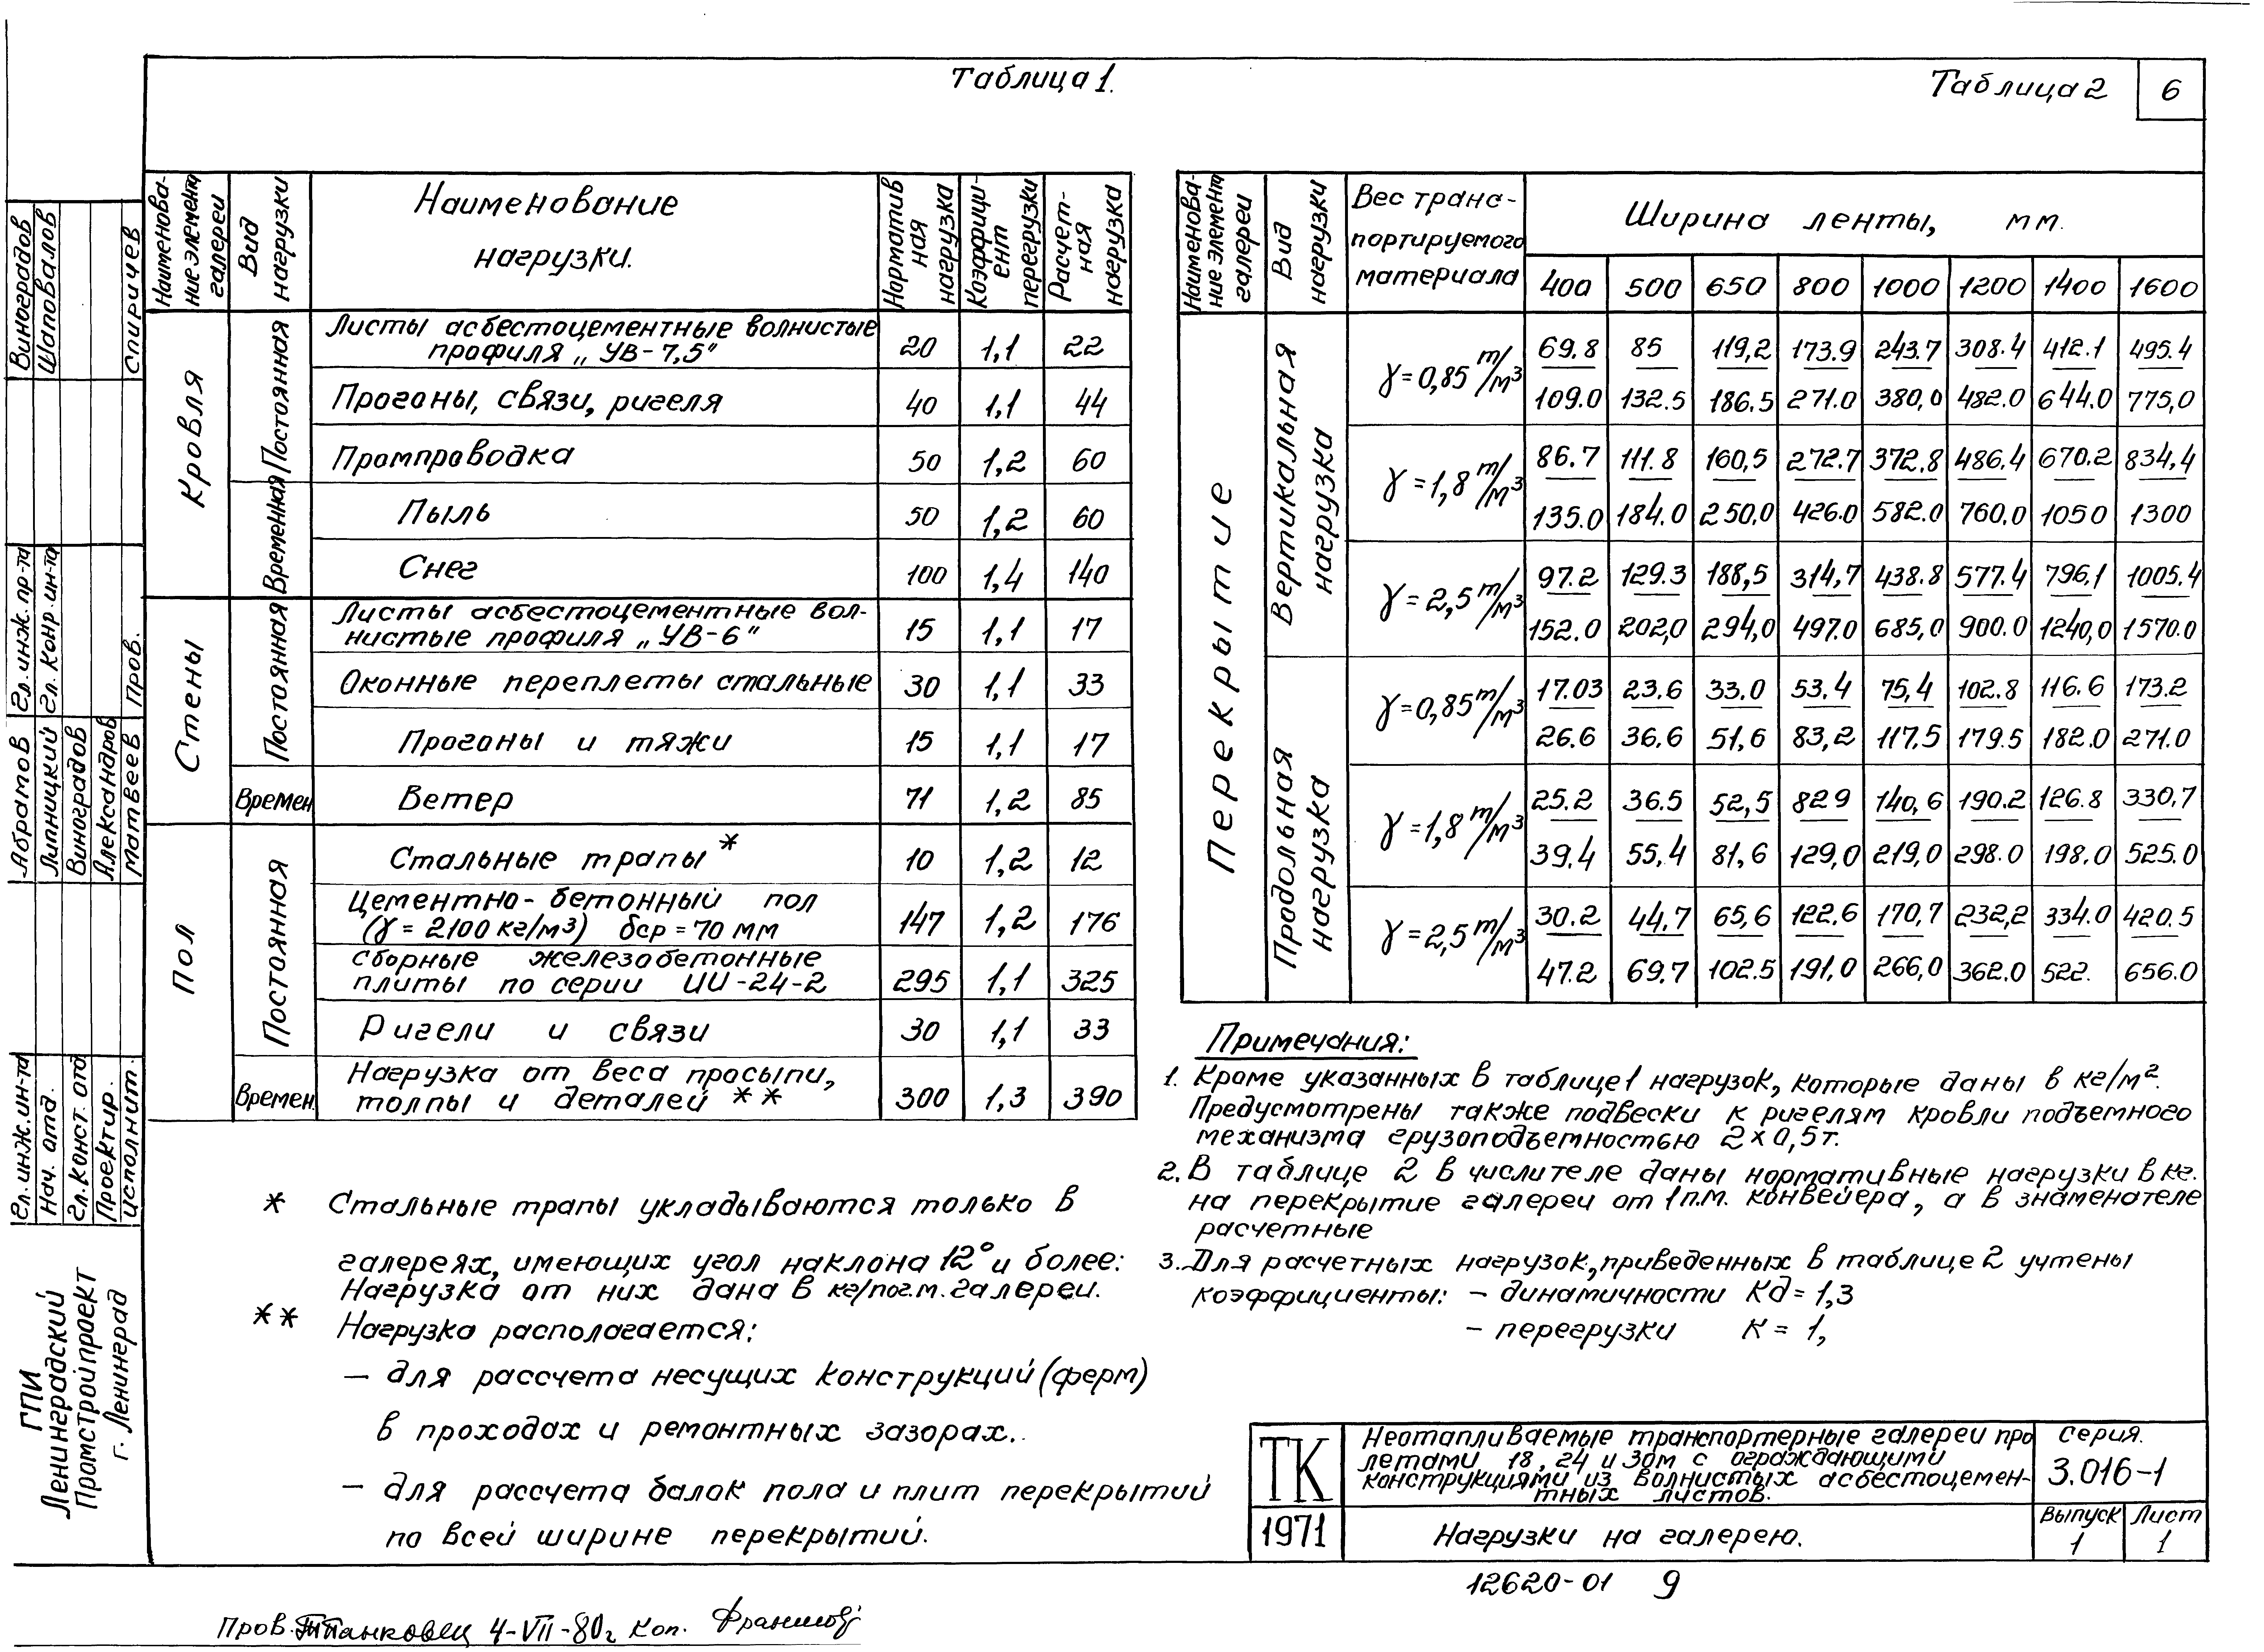 Таблица 1.
Таблица 2
6
Наименова-
ние элемента
галереи
Вид
нагрузки
Наименование
нагрузки.
Норматив
ная
нагрузка
Коэффици-
ент
перегрузки
Расчет-
ная
нагрузка
Кровля
Постоянная
Листы асбестоцементные волнистые
профиля „УВ-7,5"
20 1,1 22
Прогоны, связи, ригеля 40 1,1 44
Промпроводка 50 1,2 60
Временная
Пыль 50 1,2 60
Снег 100 1,4 140
Стены
Постоянная
Листы асбестоцементные вол-
нистые профиля „УВ-6"
15 1,1 17
Оконные переплеты стальные 30 1,1 33
Прогоны и тяжи 15 1,1 17
Времен.
Ветер 71 1,2 85
Пол
Постоянная
Стальные трапы * 10 1,2 12
Цементно-бетонный пол
(γ = 2100 кг/м³) δср = 70 мм
147 1,2 176
сборные железобетонные
плиты по серии ИИ-24-2
295 1,1 325
Ригели и связи 30 1,1 33
Времен.
Нагрузка от веса просыпи,
толпы и деталей **
300 1,3 390
Наименова-
ние элемента
галереи
Вид
нагрузки
Вес транс-
портируемого
материала
Ширина ленты, мм.
400 500 650 800 1000 1200 1400 1600
Перекрытие
Вертикальная
нагрузка
γ = 0,85 т/м³
69.8 85 119,2 173.9 243.7 308.4 412.1 495.4
109.0 132.5 186.5 271.0 380,0 482.0 644.0 775,0
γ = 1,8 т/м³
86.7 111.8 160,5 272.7 372.8 486.4 670.2 834,4
135.0 184.0 250,0 426.0 582.0 760,0 1050 1300
γ = 2,5 т/м³
97.2 129.3 188,5 314,7 438.8 577.4 796,1 1005.4
152.0 202,0 294,0 497.0 685,0 900.0 1240,0 1570.0
Продольная
нагрузка
γ = 0,85 т/м³
17.03 23.6 33.0 53.4 75,4 102.8 116.6 173.2
26.6 36.6 51,6 83,2 117.5 179.5 182.0 271.0
γ = 1,8 т/м³
25.2 36.5 52,5 829 140,6 190.2 126.8 330,7
39.4 55,4 81,6 129,0 219,0 298.0 198,0 525.0
γ = 2,5 т/м³
30.2 44.7 65,6 122.6 170,7 232,2 334.0 420.5
47.2 69.7 102.5 191,0 266,0 362.0 522. 656.0
* Стальные трапы укладываются только в
галереях, имеющих угол наклона 12° и более:
Нагрузка от них дана в кг/пог.м. галереи.
** Нагрузка располагается:
— для рассчета несущих конструкций (ферм)
в проходах и ремонтных зазорах.
— для рассчета балок пола и плит перекрытий
по всей ширине перекрытий.
Примечания:
1. Кроме указанных в таблице 1 нагрузок, которые даны в кг/м².
Предусмотрены также подвески к ригелям кровли подъемного
механизма грузоподъемностью 2×0,5т.
2. В таблице 2 в числителе даны нормативные нагрузки в кг.
на перекрытие галереи от 1 п.м. конвейера, а в знаменателе
расчетные
3. Для расчетных нагрузок, приведенных в таблице 2 учтены
коэффициенты: – динамичности Kд = 1,3
– перегрузки K = 1,
ТК
1971
Неотапливаемые транспортерные галереи про
летами 18, 24 и 30м с ограждающими
конструкциями из волнистых асбестоцемен-
тных листов.
Серия.
3.016-1
Нагрузки на галерею.
Выпуск
1
Лист
1
12620-01 9
Пров. 4-VII-80г Коп.
Виноградов
Шаповалов
Спиричев
Гл. инж. пр-та
Гл. констр. ин-та
Пров.
Абрамов
Липницкий
Виноградов
Александров
Матвеев
Гл. инж. ин-та
Нач. отд.
Гл. конст. отд
Проектир.
Исполнит.
ГПИ
Ленинградский
Промстройпроект
г. Ленинград